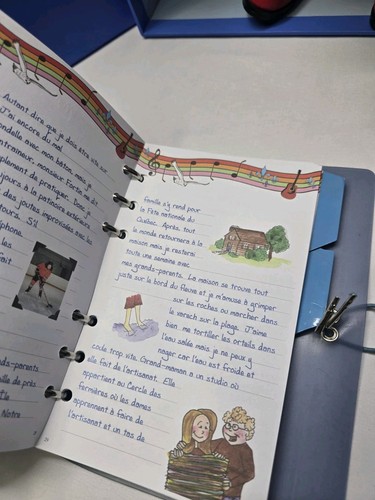 Autant dire que je dois être vite sur
J'ai encore du mal
rondelle avec mon bâton, mais je
entraîneur, monsieur Fortin me dit
simplement de pratiquer. Donc, je
jours à la patinoire extérieure
des joutes improvisées avec les
tours. S'il
éléphone
les
fait
nds-parents
ville de près
Notre
famille s'y rend pour
la Fête nationale du
Québec. Après, tout
le monde retournera à la
maison mais je resterai
toute une semaine avec
mes grands-parents. La maison se trouve tout
juste sur le bord du fleuve et je m'amuse à grimper
sur les roches ou marcher dans
le varech sur la plage. J'aime
bien me tortiller les orteils dans
l'eau salée mais je ne peux y
nager car l'eau est froide et
coule trop vite. Grand-maman a un studio où
elle fait de l'artisanat. Elle
appartient au Cercle des
fermières où les dames
apprennent à faire de
l'artisanat et un tas de